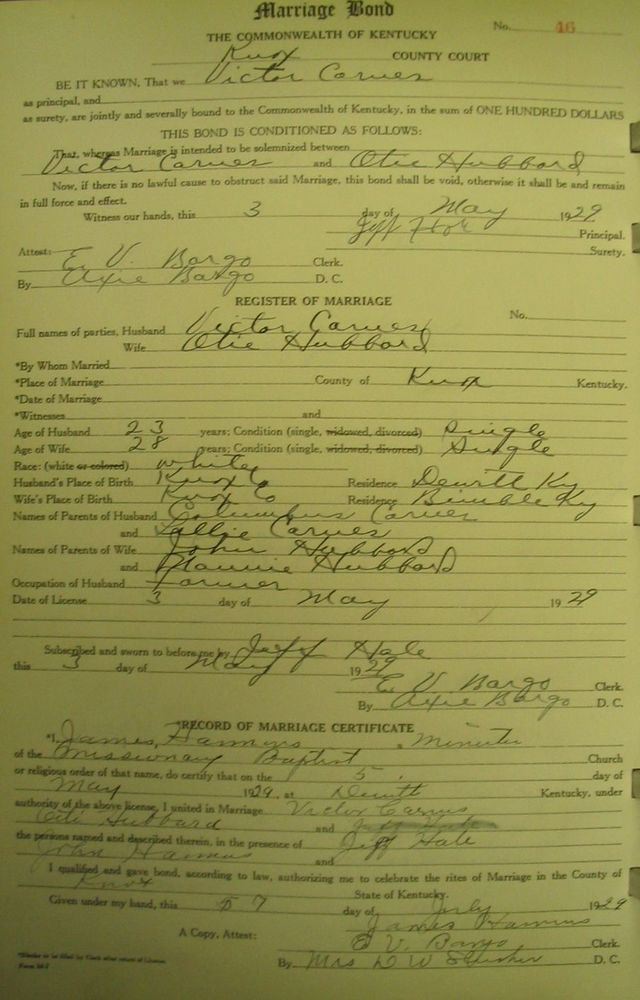 Marriage Bond
No. 46
THE COMMONWEALTH OF KENTUCKY
Knox COUNTY COURT
BE IT KNOWN, That we Victor Carnes
as principal, and
as surety, are jointly and severally bound to the Commonwealth of Kentucky, in the sum of ONE HUNDRED DOLLARS
THIS BOND IS CONDITIONED AS FOLLOWS:
That, whereas Marriage is intended to be solemnized between
Victor Carnes and Otie Hubbard
Now, if there is no lawful cause to obstruct said Marriage, this bond shall be void, otherwise it shall be and remain
in full force and effect.
Witness our hands, this 3 day of May 1929
Jeff Principal.
Surety.
Attest:
E. V. Bargo Clerk.
By Axie Bargo D. C.
REGISTER OF MARRIAGE
No.
Full names of parties, Husband Victor Carnes
Wife Otie Hubbard
*By Whom Married
*Place of Marriage County of Knox Kentucky.
*Date of Marriage
*Witnesses and
Age of Husband 23 years; Condition (single, widowed, divorced) Single
Age of Wife 28 years; Condition (single, widowed, divorced) Single
Race: (white or colored) White
Husband's Place of Birth Knox Co Residence Dewitt Ky
Wife's Place of Birth Knox Co Residence Bimble Ky
Names of Parents of Husband Columbus Carnes
and Lallie Carnes
Names of Parents of Wife John Hubbard
and Nannie Hubbard
Occupation of Husband Farmer
Date of License 3 day of May 1929
Subscribed and sworn to before me by Jeff Hale
this 3 day of May 1929
E. V. Bargo Clerk.
By Axie Bargo D. C.
*RECORD OF MARRIAGE CERTIFICATE
*I, James a Minister
of the Missionary Baptist Church
or religious order of that name, do certify that on the 5 day of
May 1929, at Dewitt Kentucky, under
authority of the above license, I united in Marriage Victor Carnes
Otie Hubbard and
the persons named and described therein, in the presence of Jeff Hale
John and
I qualified and gave bond, according to law, authorizing me to celebrate the rites of Marriage in the County of
Knox State of Kentucky.
Given under my hand, this 7 day of July 1929
James
A Copy, Attest: E V. Bargo Clerk.
By Mrs D W D. C.
*Blanks to be filled by Clerk after return of License.